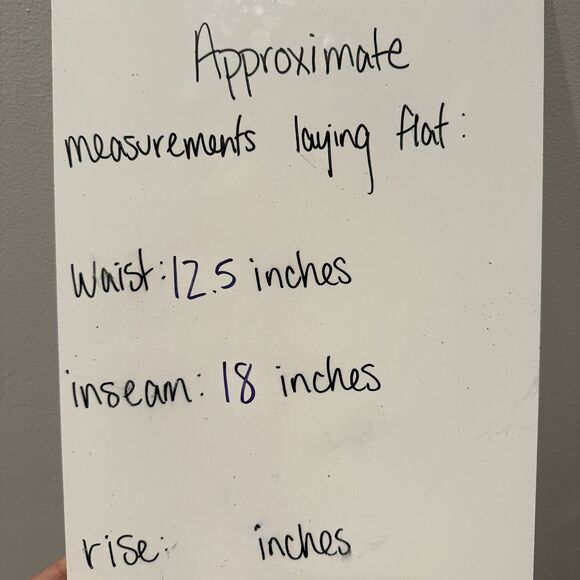 Approximate
measurements laying flat:
Waist: 12.5 inches
inseam: 18 inches
rise: inches